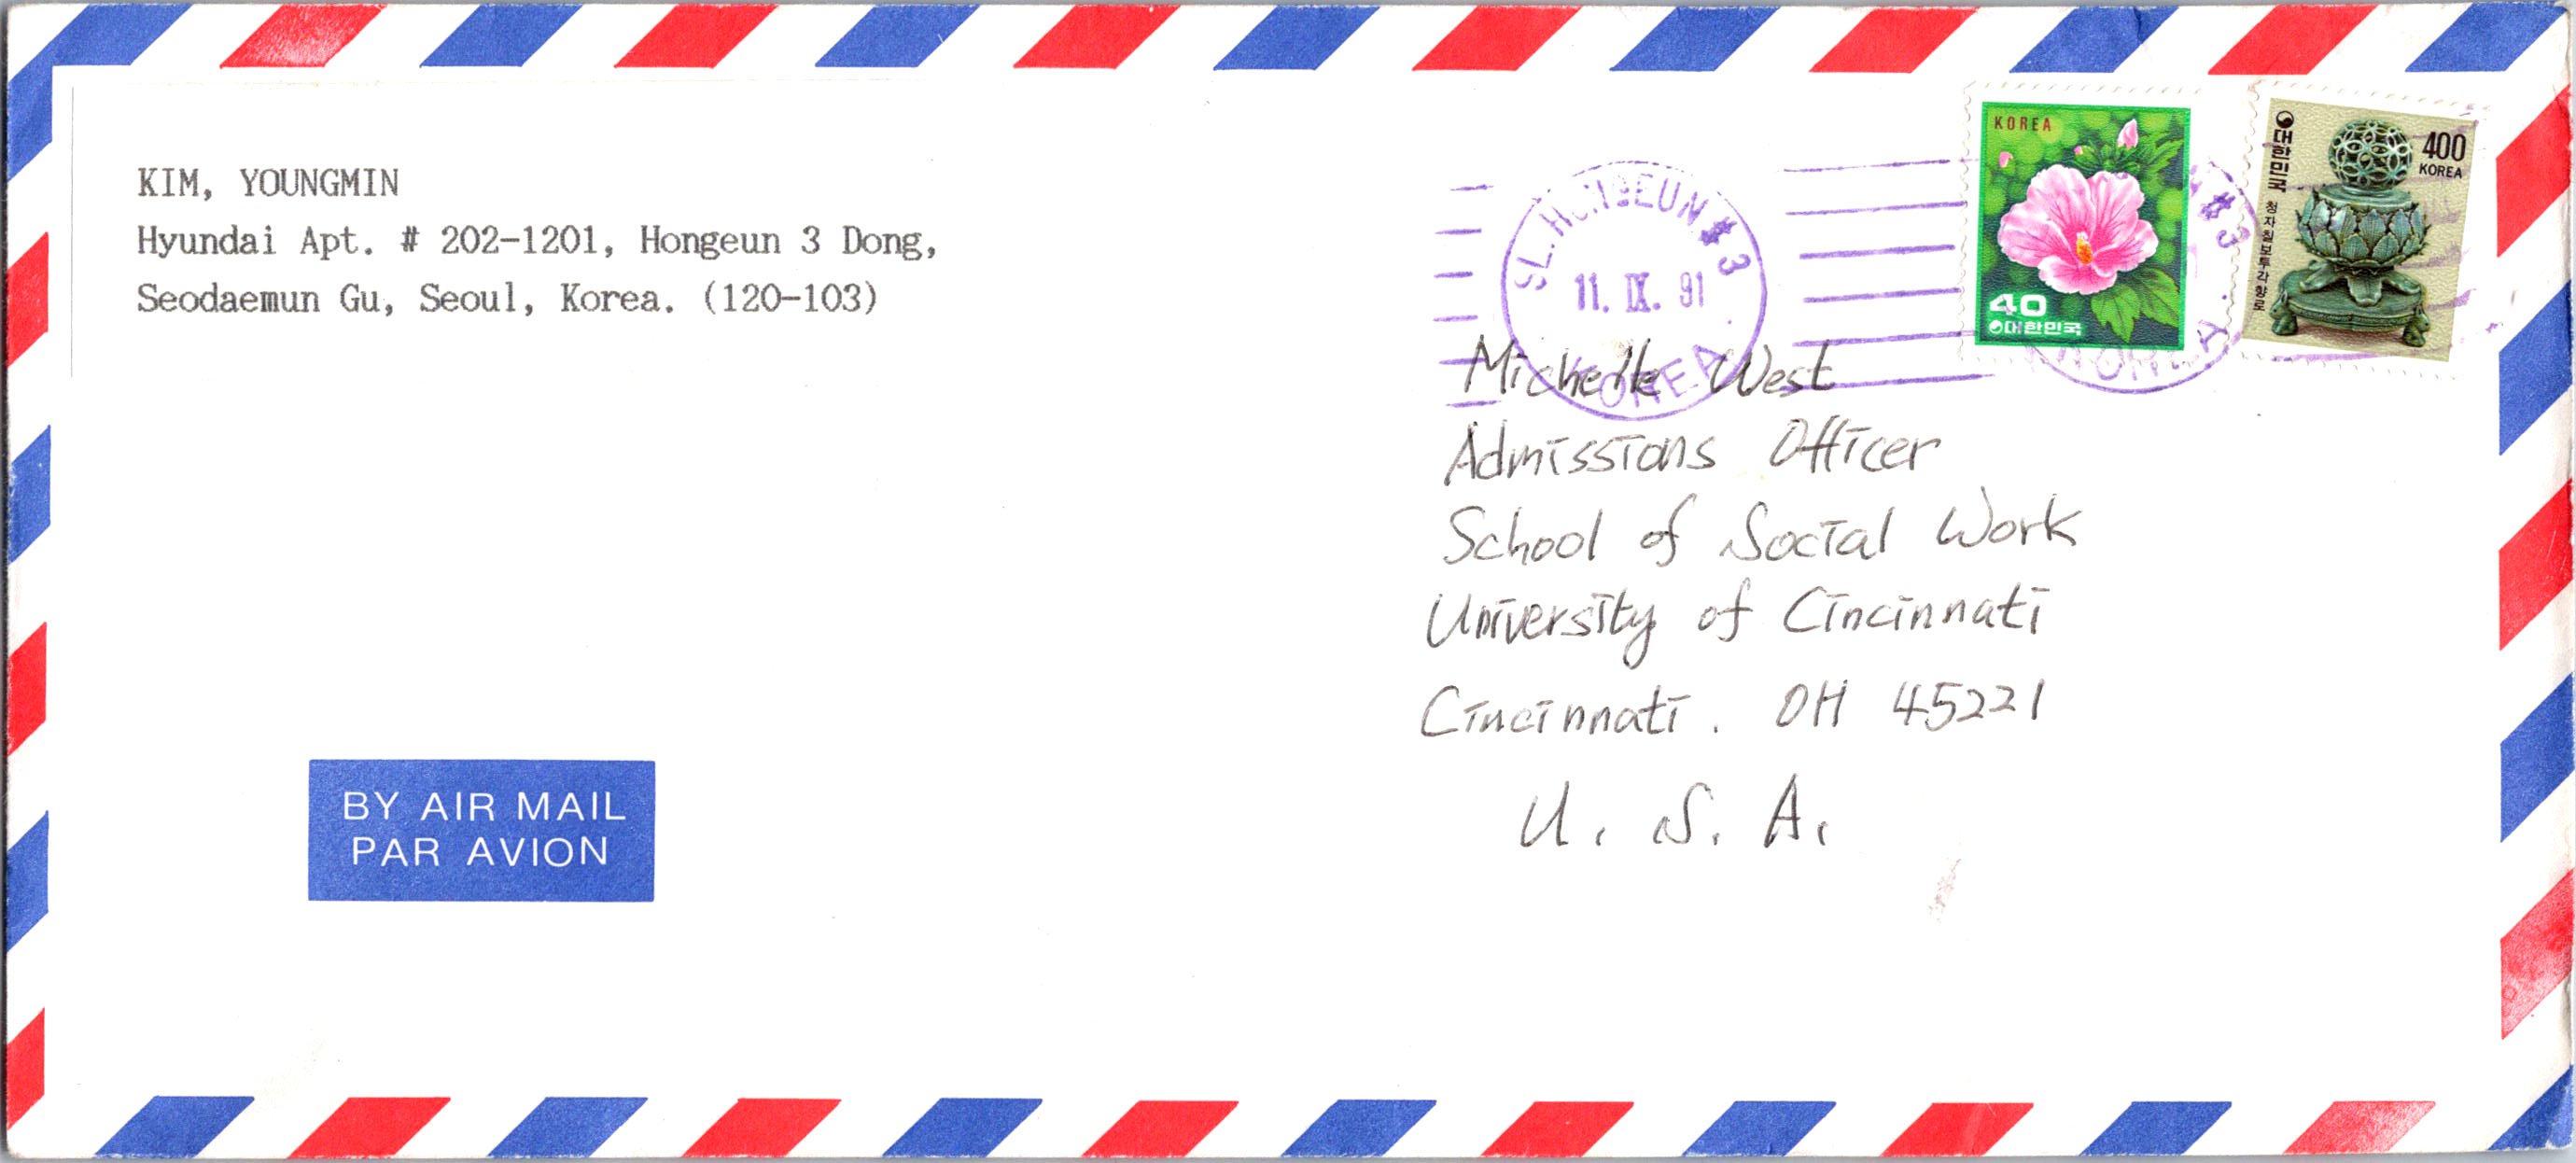 KIM, YOUNGMIN
Hyundai Apt. # 202-1201, Hongeun 3 Dong,
Seodaemun Gu, Seoul, Korea. (120-103)
SL. HONGEUN #3
11. IX. 91
KOREA
KOREA
40
대한민국
#3
KOREA
대한민국
청자칠보투각향로
400
KOREA
Michelle West
Admissions Officer
School of Social Work
University of Cincinnati
Cincinnati. OH 45221
U. S. A.
BY AIR MAIL
PAR AVION